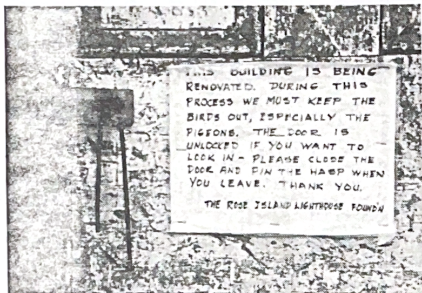 THIS BUILDING IS BEING
RENOVATED. DURING THIS
PROCESS WE MUST KEEP THE
BIRDS OUT, ESPECIALLY THE
PIGEONS. THE DOOR IS
UNLOCKED IF YOU WANT TO
LOOK IN - PLEASE CLOSE THE
DOOR AND PIN THE HASP WHEN
YOU LEAVE. THANK YOU.
THE ROSE ISLAND LIGHTHOUSE FOUND'N